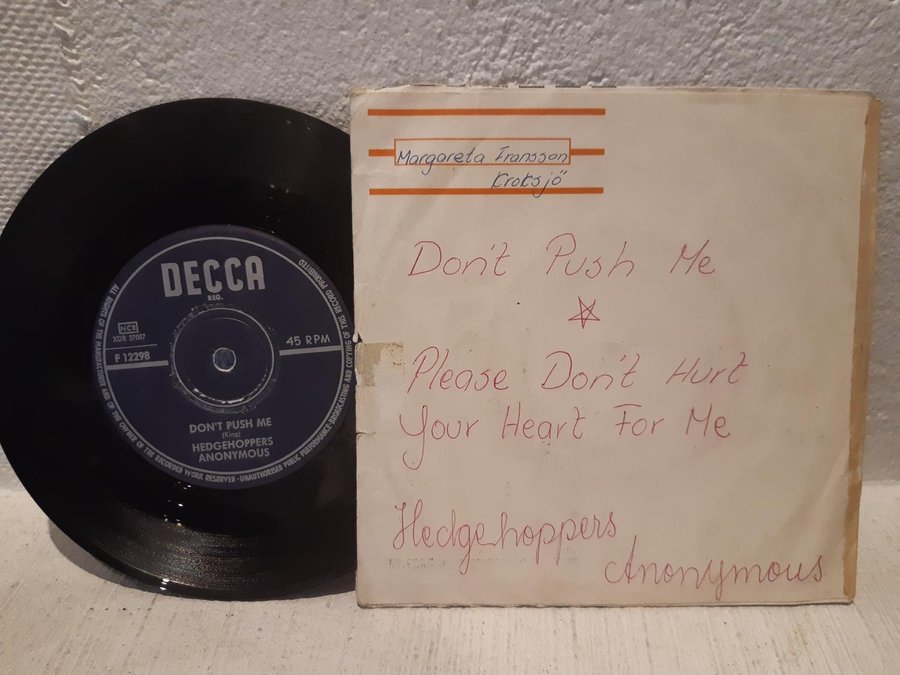 DECCA
REG.
NCB
XDR 37087
F 12298
45 RPM
DON'T PUSH ME
(King)
HEDGEHOPPERS
ANONYMOUS
ALL RIGHTS OF THE MANUFACTURER AND OF THE OWNER OF THE RECORDED WORK RESERVED · UNAUTHORISED PUBLIC PERFORMANCE · BROADCASTING AND COPYING OF THIS RECORD PROHIBITED
Margareta Fransson
Kroksjö
Don't Push Me
Please Don't Hurt
Your Heart For Me
Hedgehoppers
Anonymous